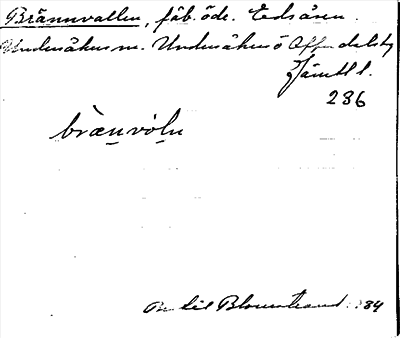 Brännvallen, fäb. öde. Edsåsen.
Undersåkers sn. Undersåkers o Offerdals tg
Jämtl l.
286
bræn̲vòl̲n
Bertil Blomstrand. 34